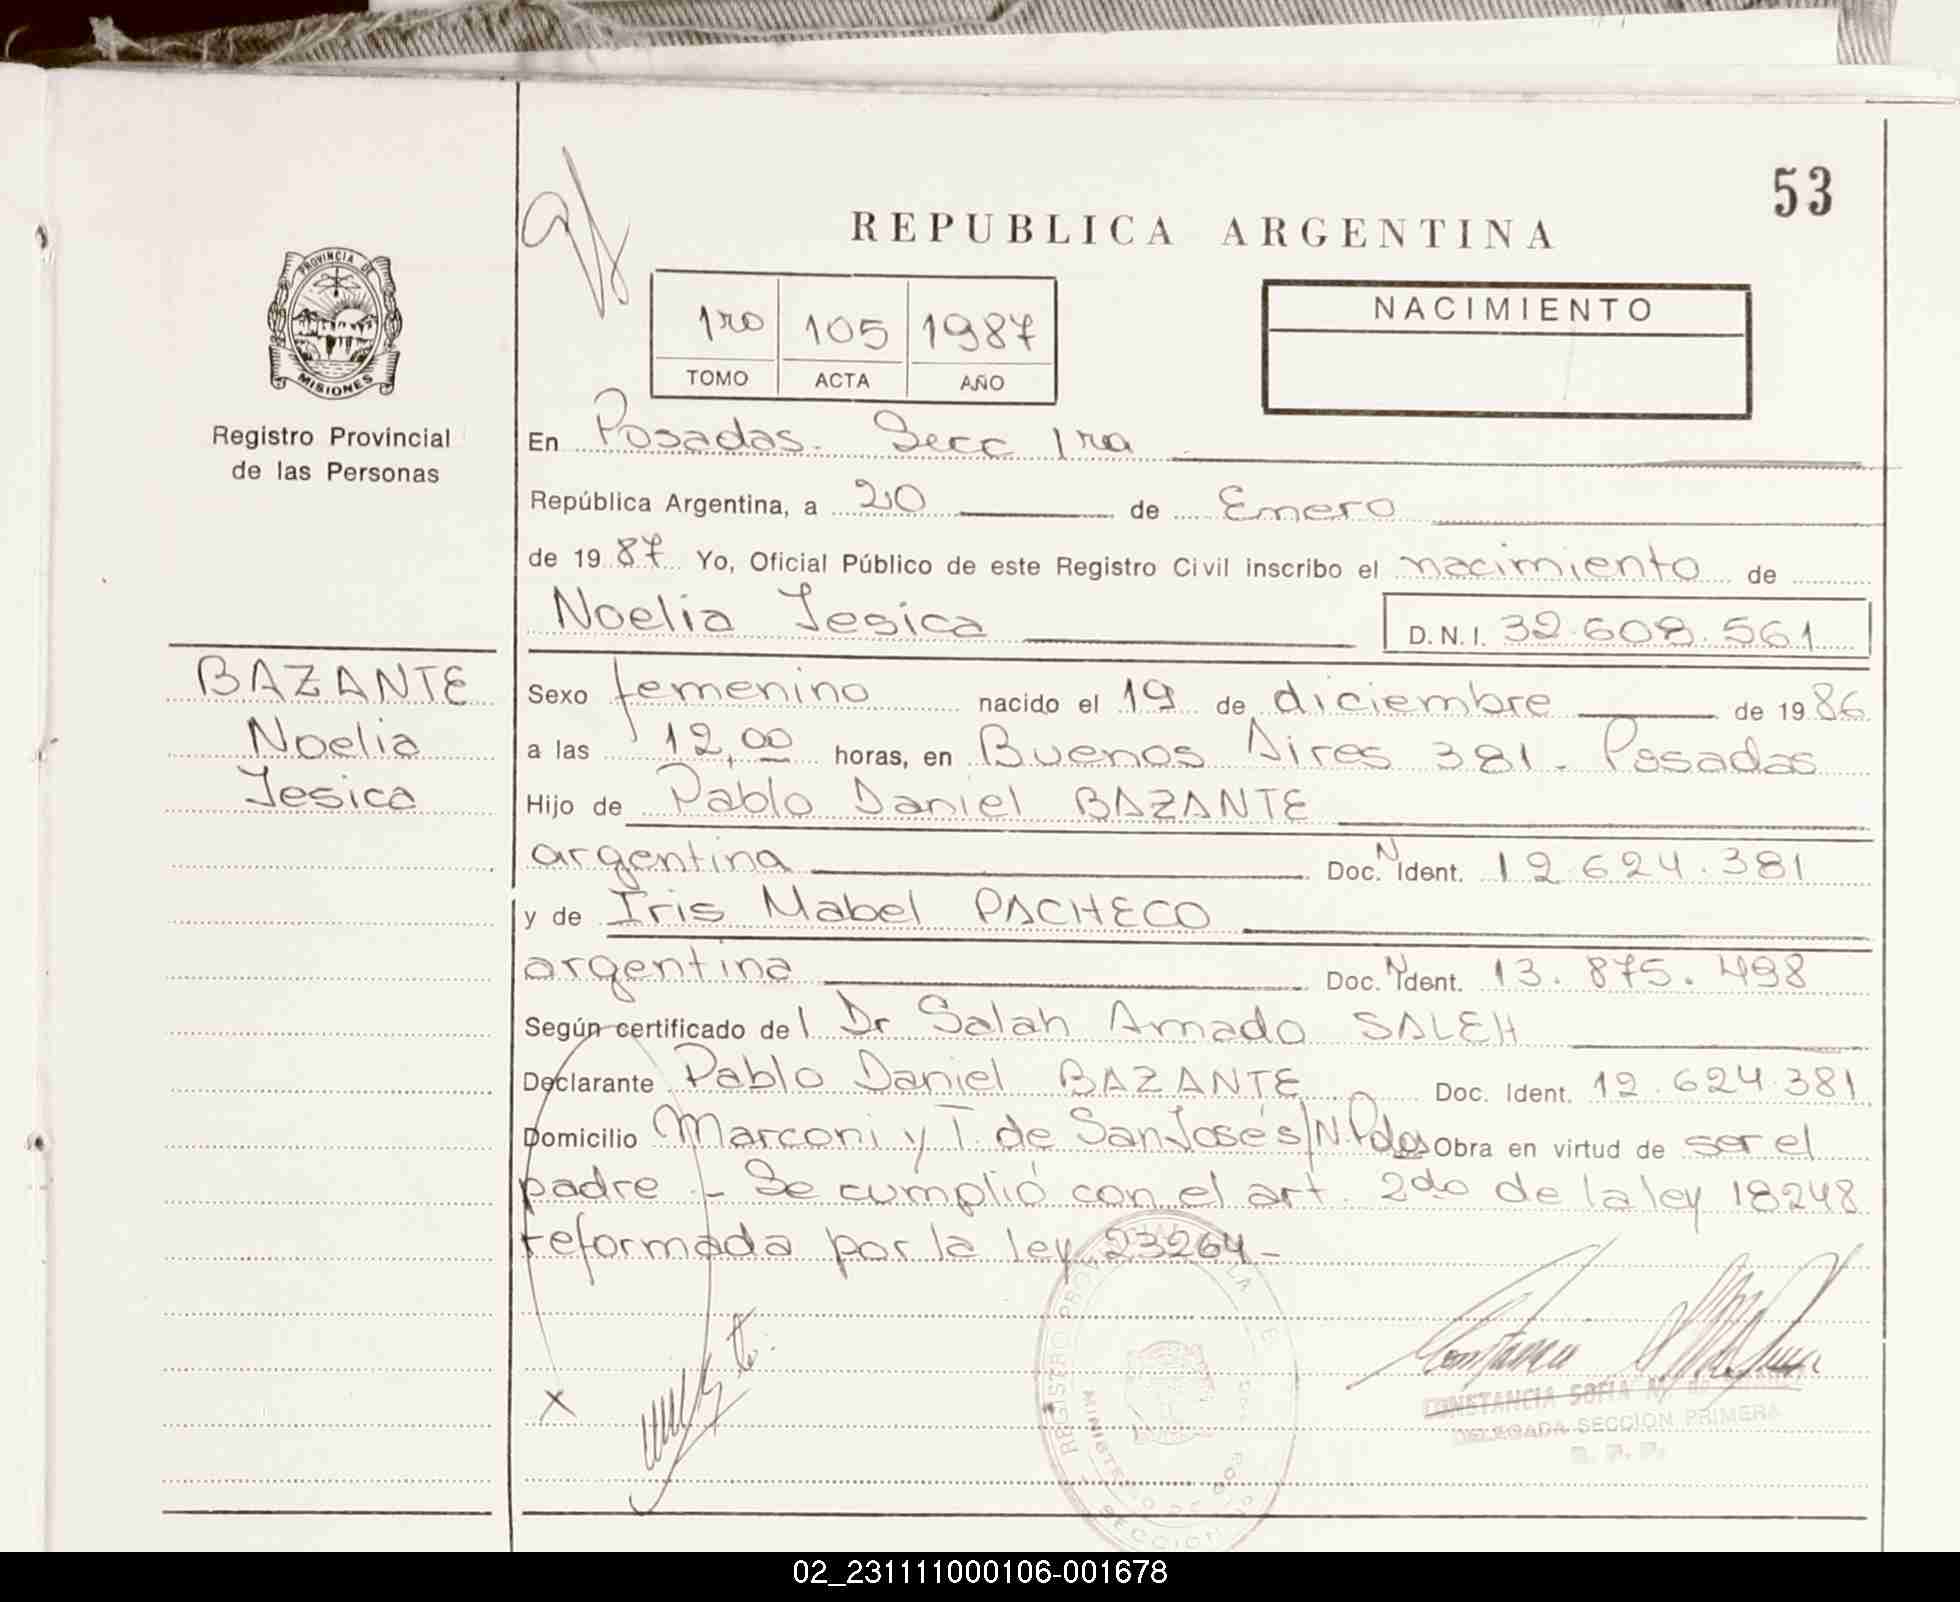 53
REPUBLICA ARGENTINA
PROVINCIA DE
MISIONES
Registro Provincial
de las Personas
1ro 105 1987
TOMO ACTA AÑO
NACIMIENTO
En Posadas. Secc 1ra
República Argentina, a 20 de Enero
de 1987 Yo, Oficial Público de este Registro Civil inscribo el nacimiento de
Noelia Jesica D.N.I. 32.608.561
BAZANTE
Noelia
Jesica
Sexo femenino nacido el 19 de diciembre de 1986
a las 12,00 horas, en Buenos Aires 381. Posadas
Hijo de Pablo Daniel BAZANTE
argentina Doc. N Ident. 12.624.381
y de Iris Mabel PACHECO
argentina Doc. N Ident. 13.875.498
Según certificado del Dr Salah Amado SALEH
Declarante Pablo Daniel BAZANTE Doc. Ident. 12.624.381
Domicilio Marconi y T. de San José s/N. Pdas Obra en virtud de ser el
padre - Se cumplió con el art. 2do de la ley 18248
reformada por la ley 23264-
X
REGISTRO
MINISTERIO DE
SECCION
CONSTANCIA SOFIA
DELEGADA SECCION PRIMERA
R. P. P.
02_231111000106-001678